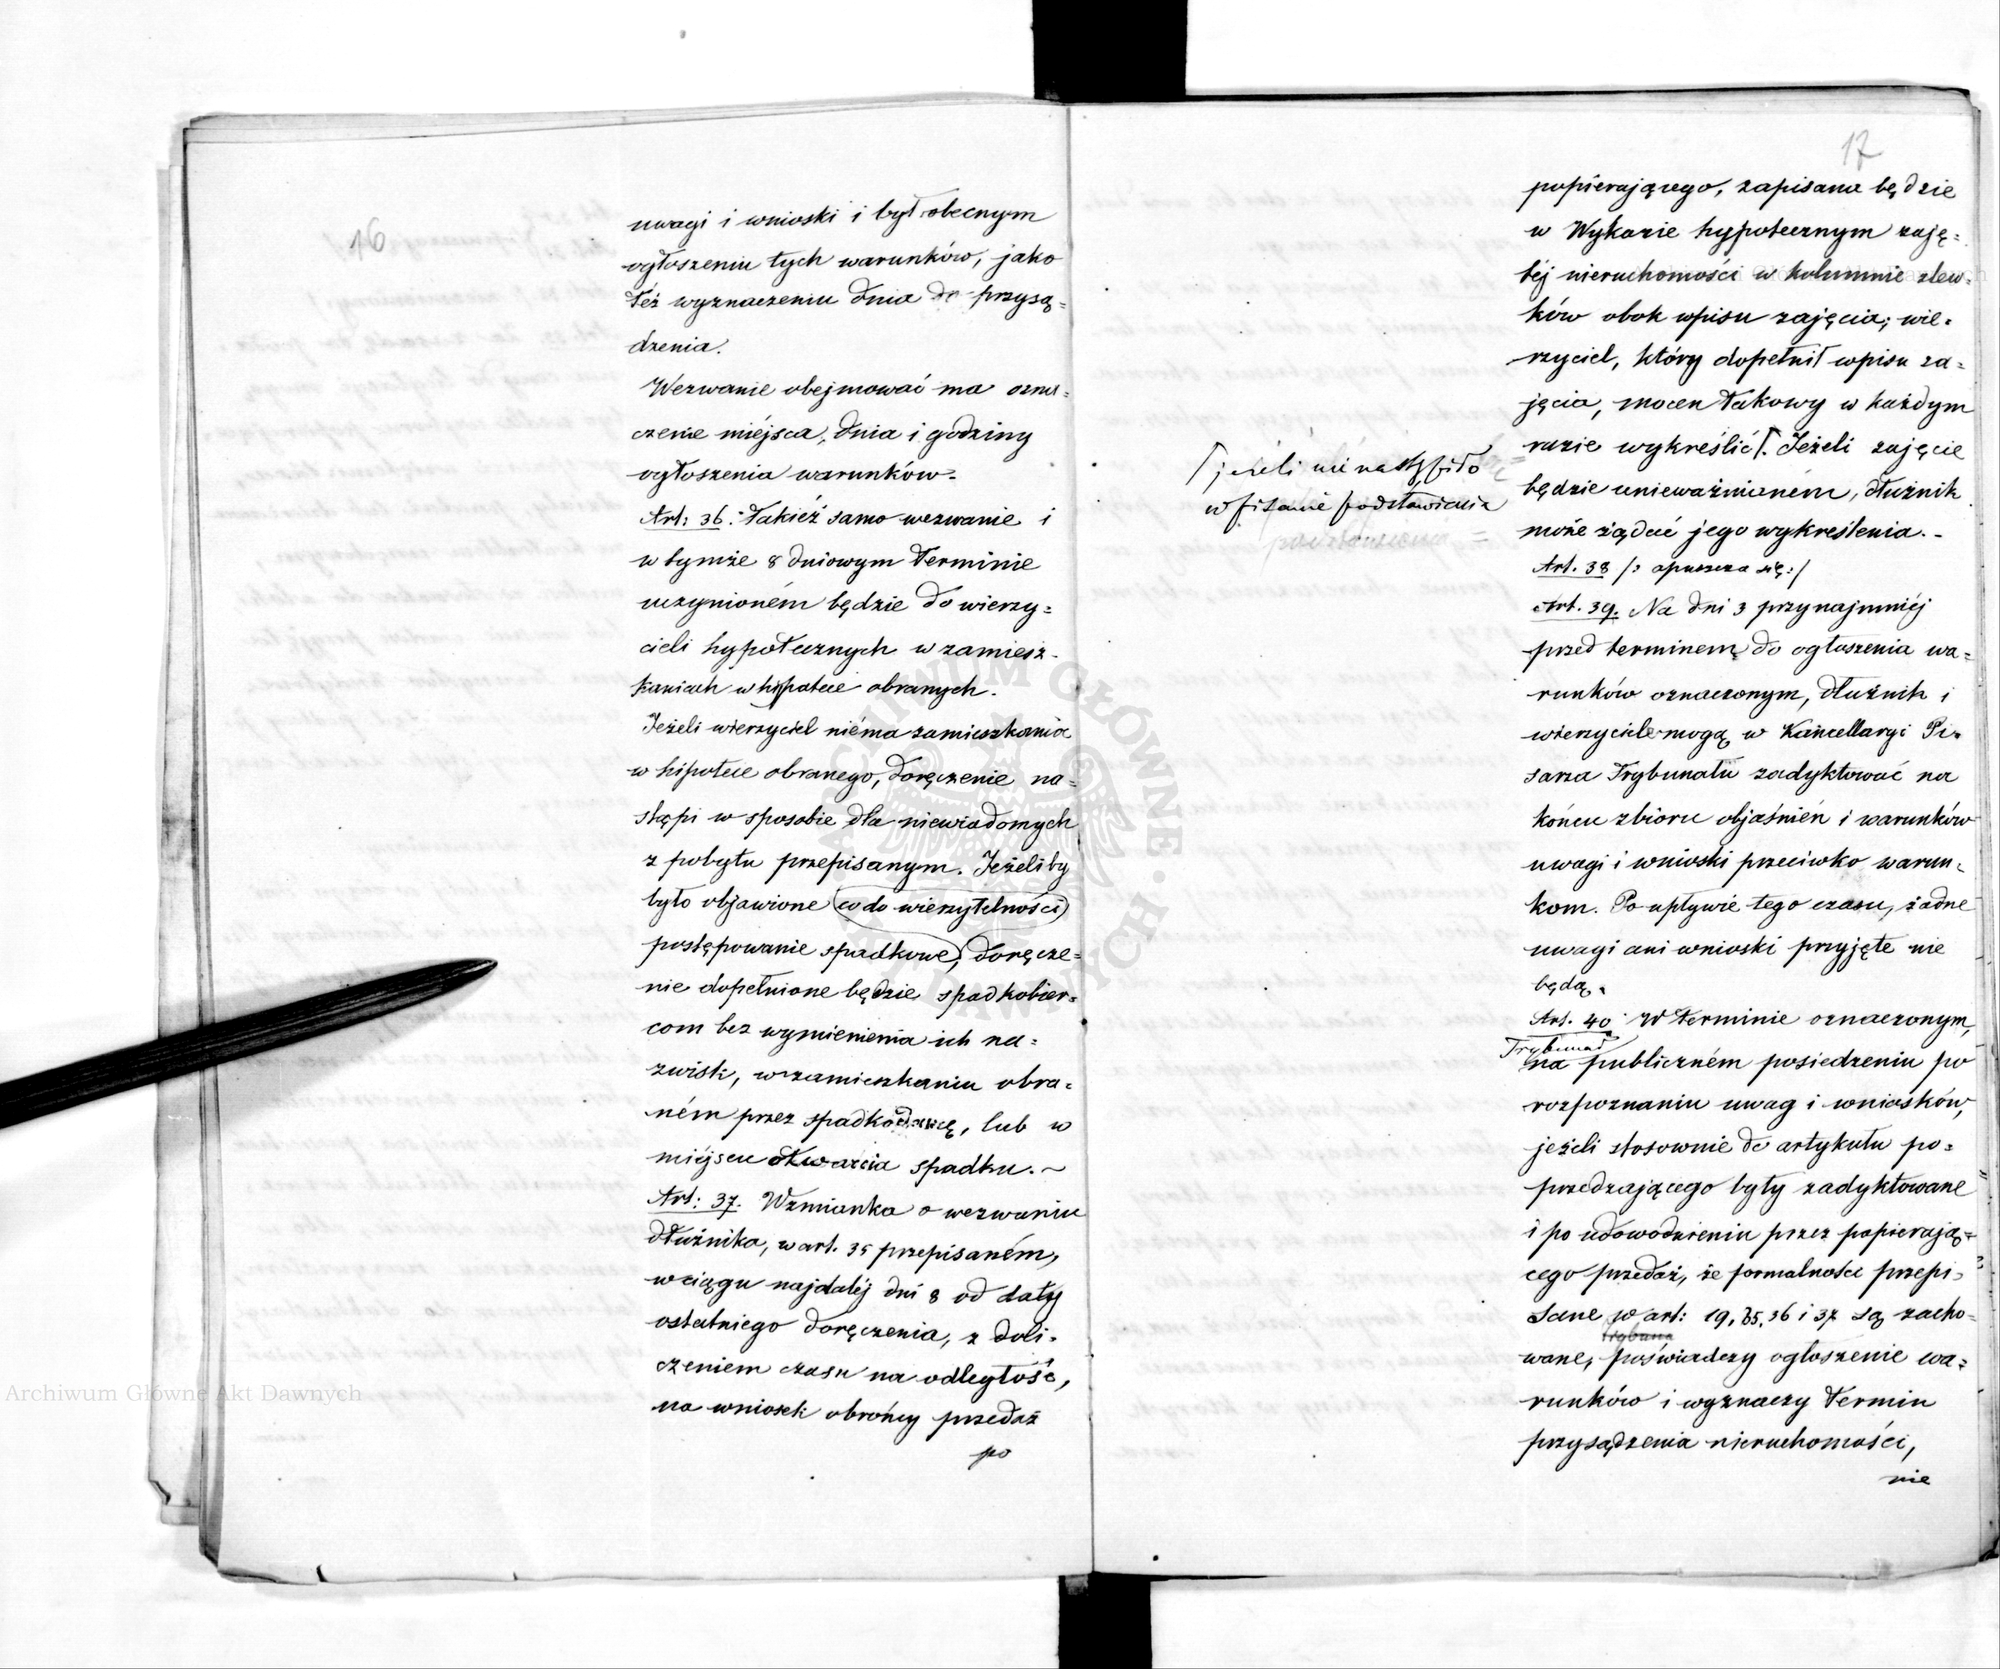 16
uwagi i wnioski i był obecnym
ogłoszeniu tych warunków, jako
też wyznaczeniu dnia do przysą=
dzenia.
Wezwanie obejmować ma ozna=
czenie miejsca, dnia i godziny
ogłoszenia warunków.
Art: 36. Takież samo wezwanie i
w tymże 8 dniowym terminie
uczynioném będzie do wierzy=
cieli hypotecznych w zamiesz-
kaniach w hipotece obranych.
Jeżeli wierzyciel niéma zamieszkania
w hipotece obranego, doręczenie na=
stąpi w sposobie dla niewiadomych
z pobytu przepisanym. Jeżeliby
było objawione (co do wierzytelności)
postępowanie spadkowe, doręcze=
nie dopełnione będzie spadkobier=
com bez wymienienia ich na=
zwisk, w zamieszkaniu obra=
ném przez spadkodawcę, lub w
miéjscu otwarcia spadku. ~
Art: 37. Wzmianka o wezwaniu
dłużnika, w art. 35 przepisaném,
w ciągu najdaléj dni 8 od daty
ostatniego doręczenia, z doli=
czeniem czasu na odległość,
na wniosek obrońcy przedaż
po
17
popierającego, zapisana będzie
w Wykazie hypotecznym zaję=
téj nieruchomości w kolumnie zlew=
ków obok wpisu zajęcia; wie=
rzyciel, który dopełnił wpisu za=
jęcia, mocen takowy w każdym
razie wykreślić Γ. Jeżeli zajęcie
Γ jeżeli nie nastąpiło
w pisanie podstawienia
będzie unieważnioném, dłużnik
może żądać jego wykreślenia. -
Art. 38 /: opuszcza się :/
Art. 39. Na dni 3 przynajmniéj
przed terminem do ogłoszenia wa=
runków oznaczonym, dłużnik i
wierzyciele mogą w Kancellaryi Pi=
sarza Trybunału zadyktować na
końcu zbioru objaśnień i warunków
uwagi i wnioski przeciwko warun=
kom. Po upływie tego czasu, żadne
uwagi ani wnioski przyjęte nie
będą.
Art. 40. W terminie oznaczonym,
Trybunał
na publiczném posiedzeniu po
rozpoznaniu uwag i wniosków,
jeżeli stosownie do artykułu po=
przedzającego były zadyktowane
i po udowodnieniu przez popierają=
cego przedaż, że formalności przepi=
sane w art: 19, 35, 36 i 37 są zacho=
wane, poświadczy ogłoszenie wa=
runków i wyznaczy termin
przysądzenia nieruchomości,
nie
Archiwum Główne Akt Dawnych